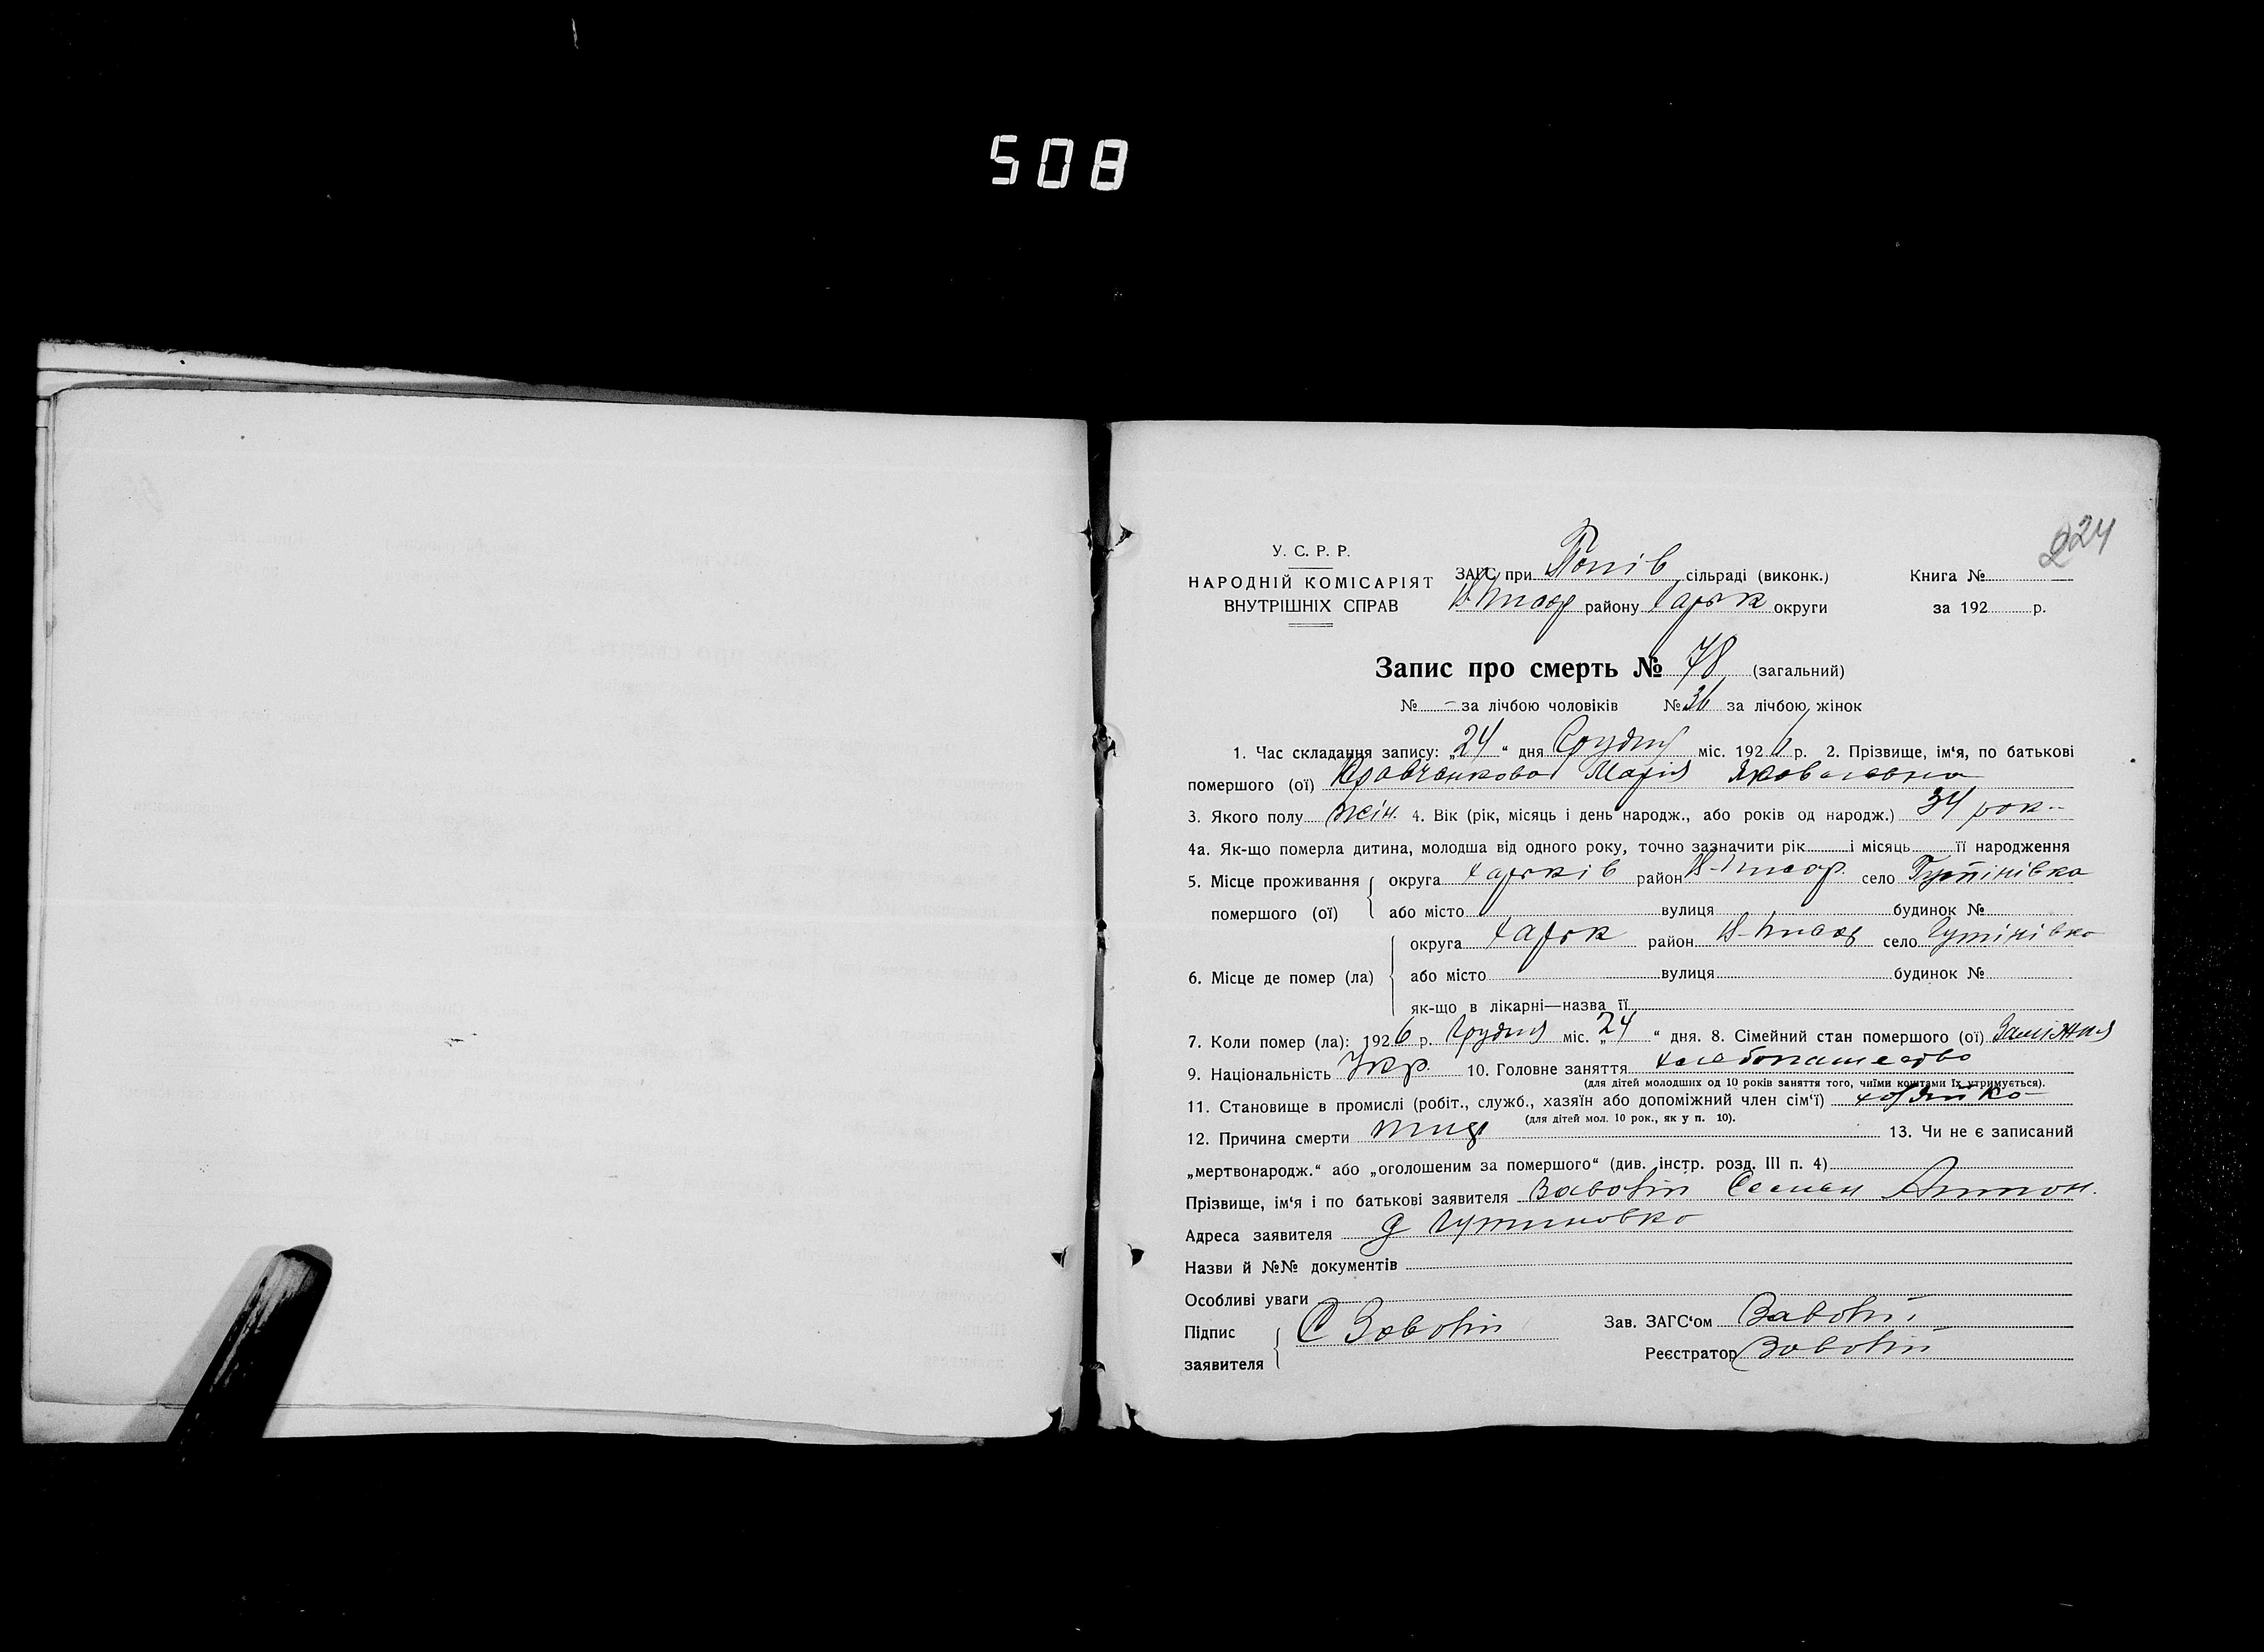 508
224
У. С. Р. Р.
НАРОДНІЙ КОМІСАРІЯТ
ВНУТРІШНІХ СПРАВ
ЗАГС при Попів сільраді (виконк.)
району Харьк округи
Книга №
за 192 р.
Запис про смерть № 78 (загальний)
№ - за лічбою чоловіків № 36 за лічбою жінок
1. Час складання запису: „24“ дня Грудня міс. 1926 р. 2. Прізвище, ім‘я, по батькові
помершого (ої) Кравченкова Марія Яковлевна
3. Якого полу жін. 4. Вік (рік, місяць і день народж., або років од народж.) 34 рок.
4а. Як-що померла дитина, молодша від одного року, точно зазначити рік і місяць її народження
5. Місце проживання помершого (ої)
округа Харьків район село
або місто вулиця будинок №
6. Місце де помер (ла)
округа Харьк район село Гутінівка
або місто вулиця будинок №
як-що в лікарні—назва її
7. Коли помер (ла): 1926 р. Грудня міс. „24“ дня. 8. Сімейний стан помершого (ої) Заміжня
9. Національність Укр. 10. Головне заняття хлебопашество
(для дітей молодших од 10 років заняття того, чиїми коштами їх утримується).
11. Становище в промислі (робіт., служб., хазяїн або допоміжний член сім‘ї) хозяйка
(для дітей мол. 10 рок., як у п. 10).
12. Причина смерти 13. Чи не є записаний
„мертвонародж.“ або „оголошеним за помершого“ (див. інстр. розд. III п. 4)
Прізвище, ім‘я і по батькові заявителя Семен Антон.
Адреса заявителя Гутиновка
Назви й №№ документів
Особливі уваги
Підпис заявителя
Зав. ЗАГС‘ом
Реєстратор